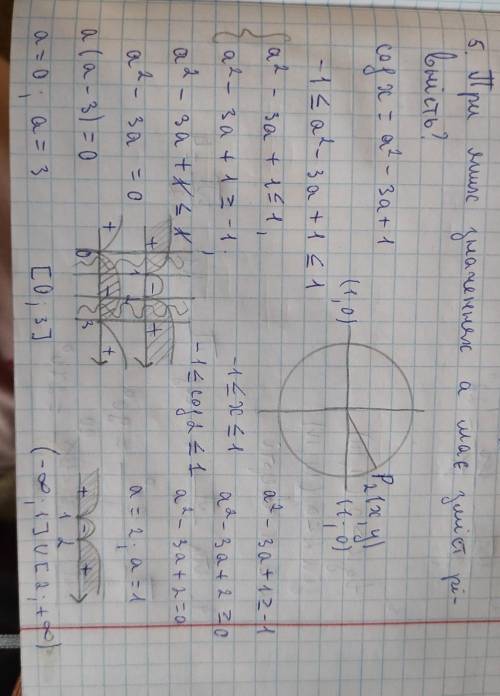 5. При яких значеннях a має зміст рі-
вність?
cos x = a² - 3a + 1
-1 ≤ a² - 3a + 1 ≤ 1
a² - 3a + 1 ≤ 1,
a² - 3a + 1 ≥ -1.
a² - 3a + 1 ≤ 1,
a² - 3a = 0
a(a - 3) = 0
a = 0; a = 3
(1, 0)
P₂(x, y)
(1, 0)
-1 ≤ x ≤ 1
-1 ≤ cos 2 ≤ 1
a² - 3a + 1 ≥ -1
a² - 3a + 2 ≥ 0
a² - 3a + 2 = 0
a = 2; a = 1
+ - +
1 2
+ - +
0 3
[0; 3]
+ - +
1 2
(-∞; 1] ∪ [2; +∞)